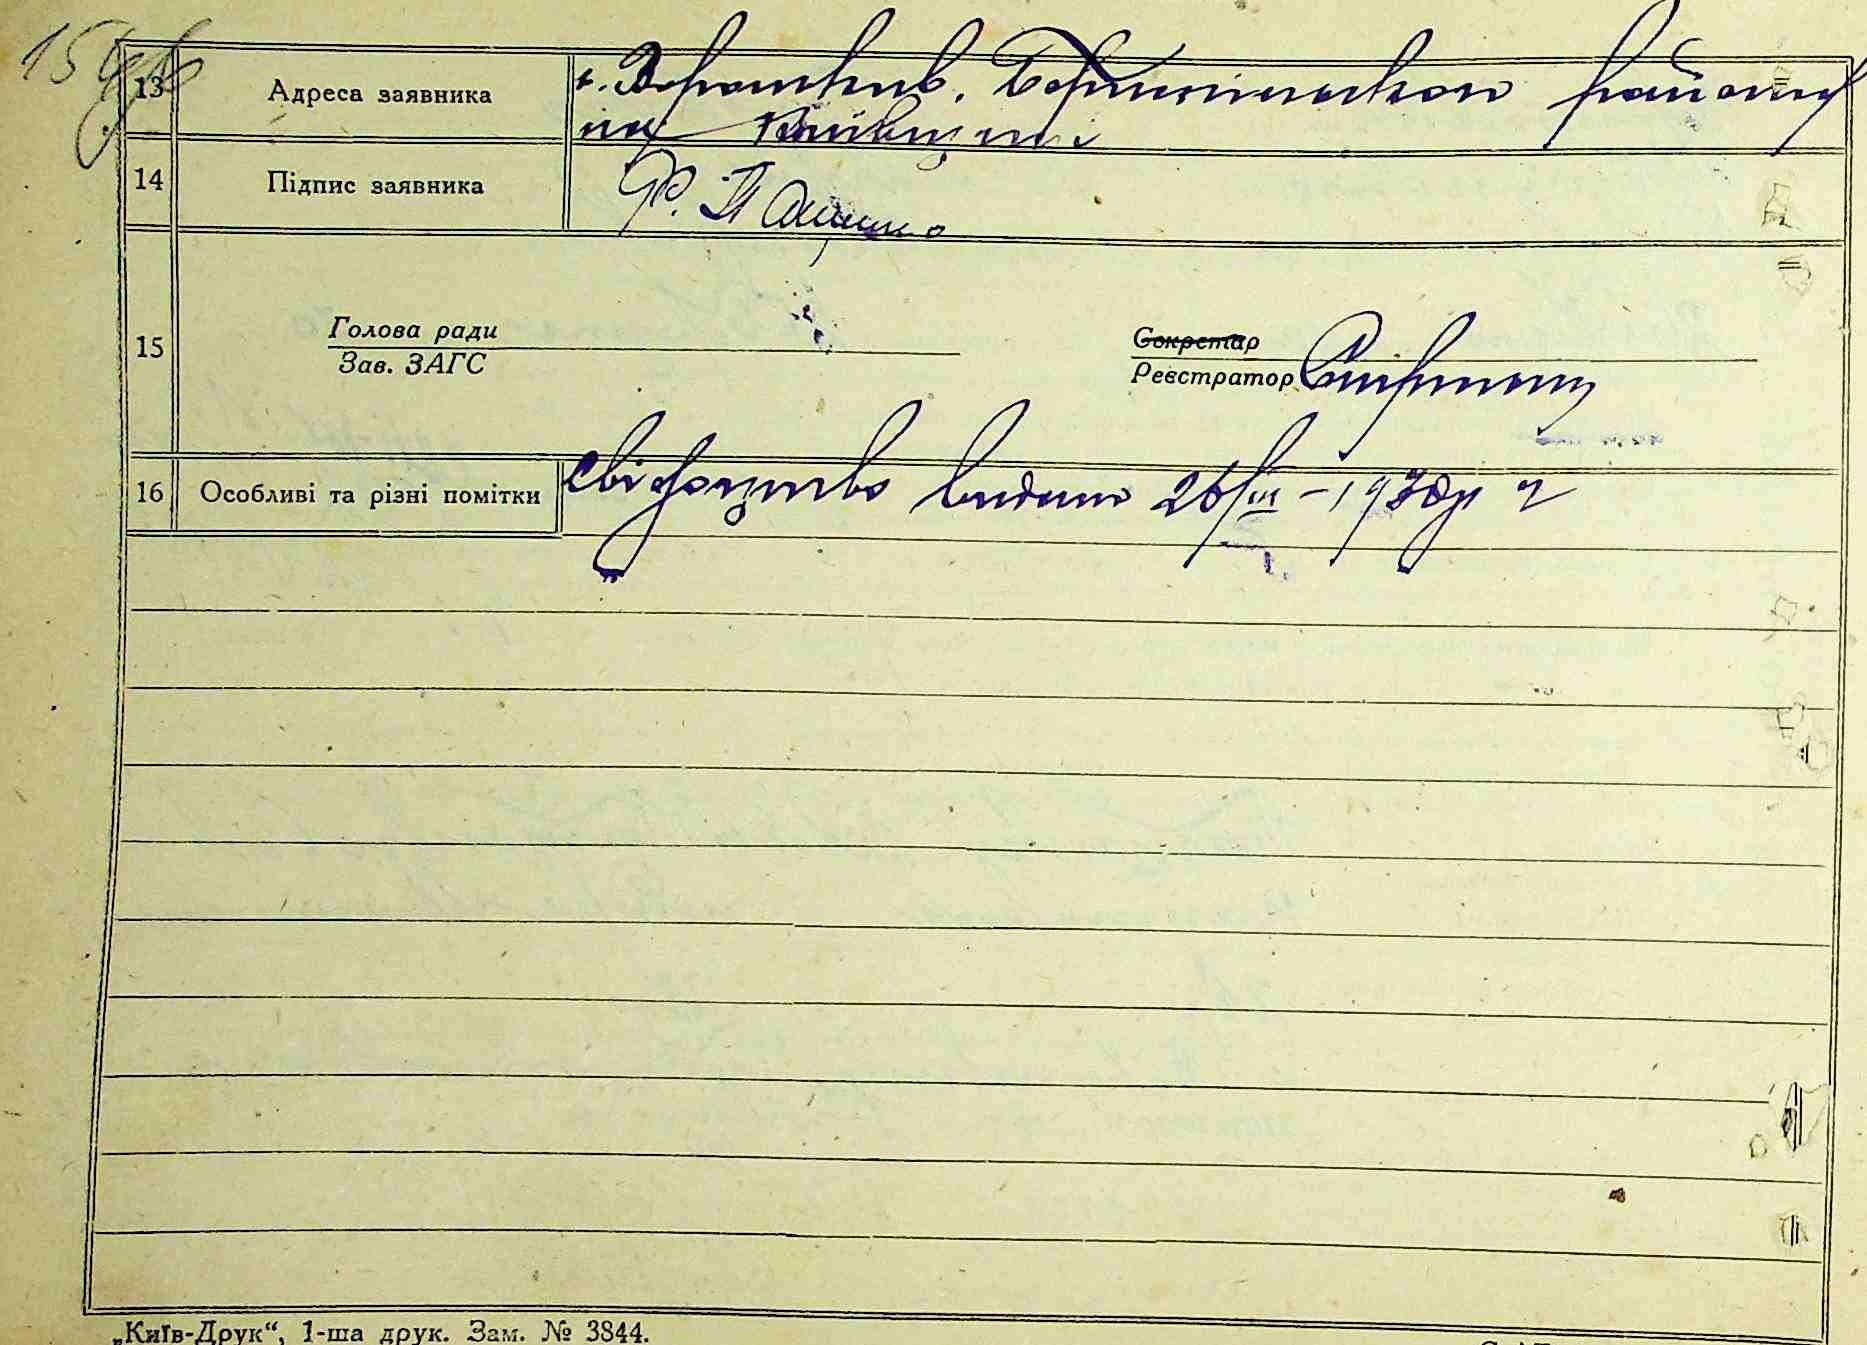 13 Адреса заявника с. Вороньків, Бориспільского району
на Київщині
14 Підпис заявника Ф.
15 Голова ради Секретар
Зав. ЗАГС Реєстратор
16 Особливі та різні помітки свідоцтво видано 26/III – 1938 р
„Київ-Друк“, 1-ша друк. Зам. № 3844.